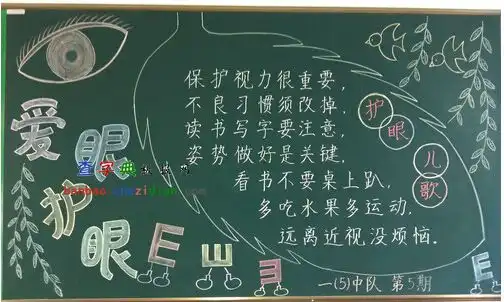 爱眼护眼
保护视力很重要，
不良习惯须改掉，
读书写字要注意，
姿势做好是关键，
看书不要桌上趴，
多吃水果多运动，
远离近视没烦恼．
护眼儿歌
E E E E
一(5)中队 第5期
查字典